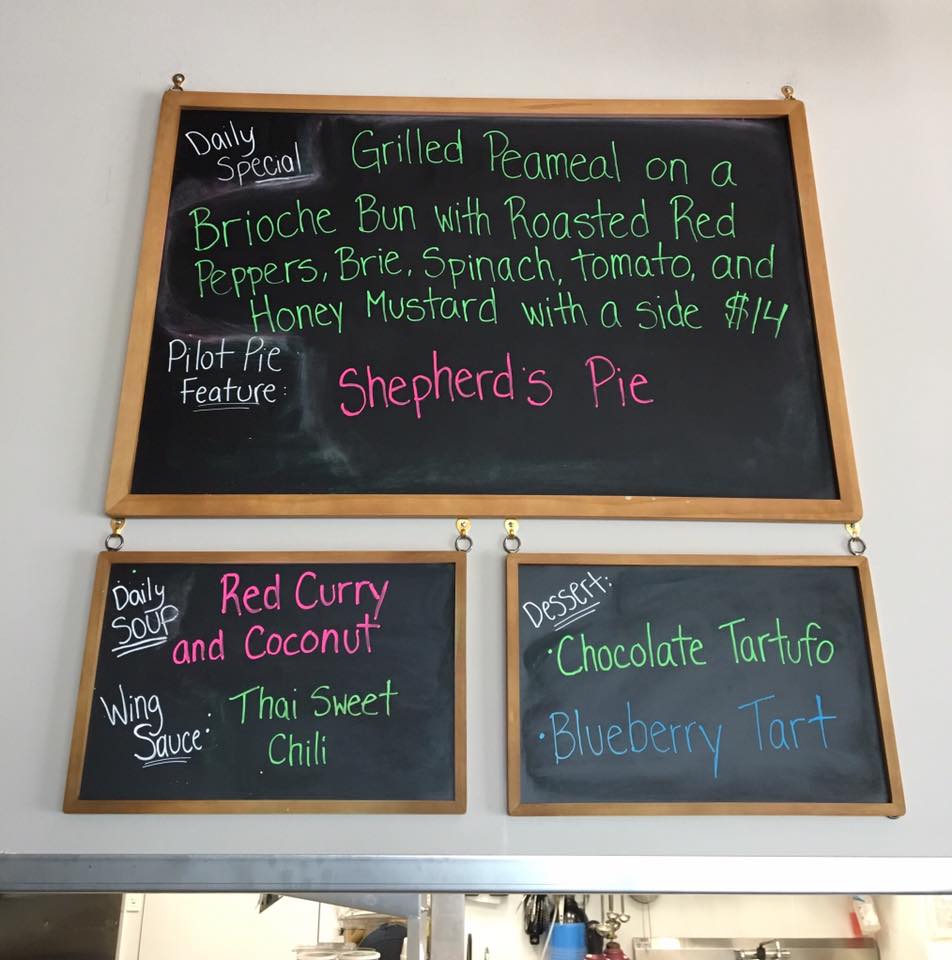 Daily
Special
Grilled Peameal on a
Brioche Bun with Roasted Red
Peppers, Brie, Spinach, tomato, and
Honey Mustard with a side $14
Pilot Pie
Feature:
Shepherd's Pie
Daily
Soup
Red Curry
and Coconut
Wing
Sauce:
Thai Sweet
Chili
Dessert:
·Chocolate Tartufo
·Blueberry Tart